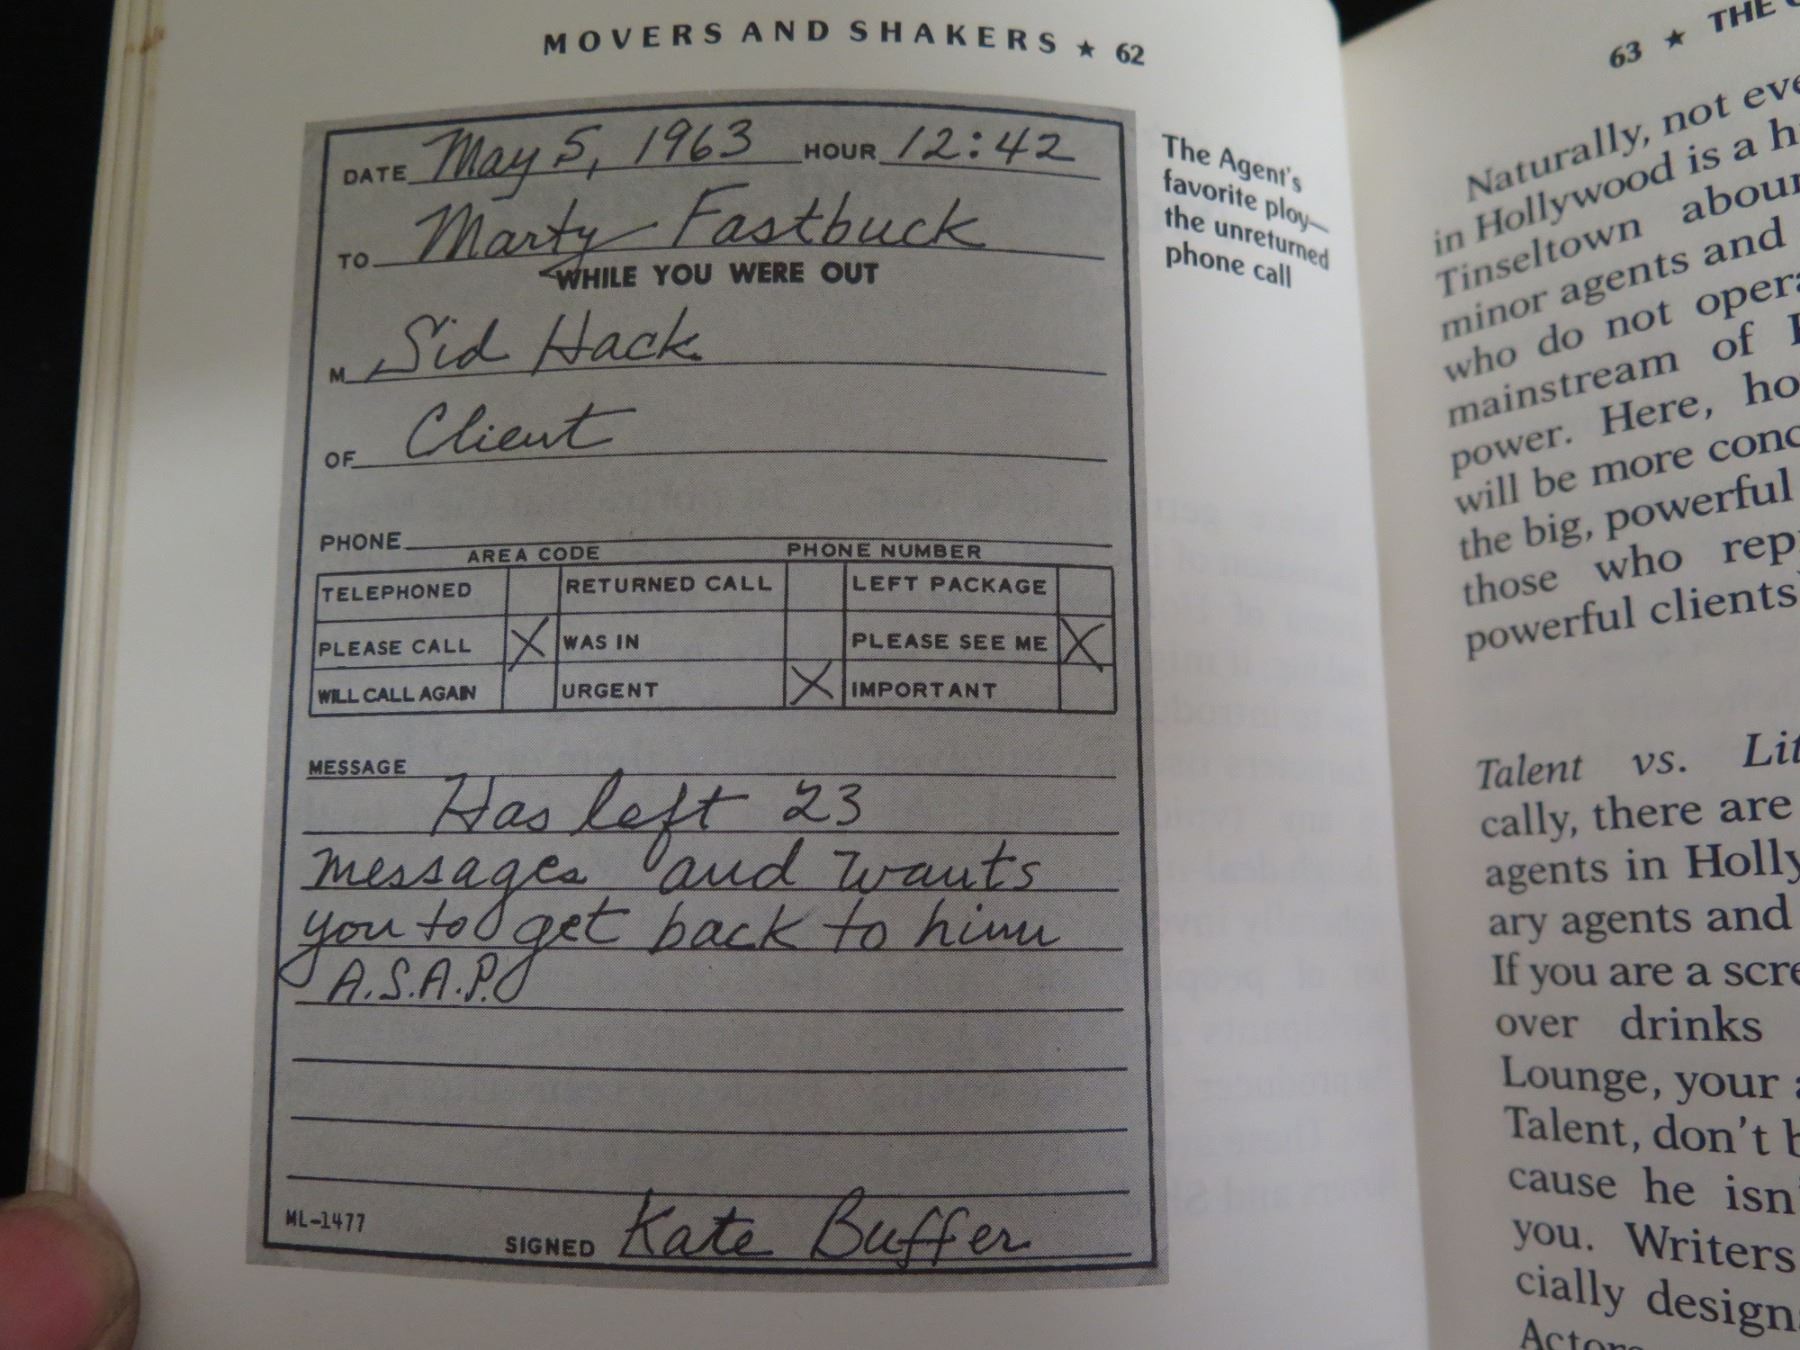 MOVERS AND SHAKERS ★ 62
DATE May 5, 1963 HOUR 12:42
TO Marty Fastbuck
WHILE YOU WERE OUT
M Sid Hack
OF Client
PHONE
AREA CODE PHONE NUMBER
TELEPHONED RETURNED CALL LEFT PACKAGE
PLEASE CALL X WAS IN PLEASE SEE ME X
WILL CALL AGAIN URGENT X IMPORTANT
MESSAGE
Has left 23
messages and wants
you to get back to him
A.S.A.P.
ML-1477
SIGNED Kate Buffer
The Agent's
favorite ploy—
the unreturned
phone call
63 ★ THE
Naturally, not
in Hollywood is a
Tinseltown
minor agents and
who do not
mainstream of
power. Here,
will be more
the big, powerful
those who
powerful clients
Talent vs.
cally, there are
agents in
ary agents and
If you are a
over drinks
Lounge, your
Talent, don't
cause he
you. Writers
cially